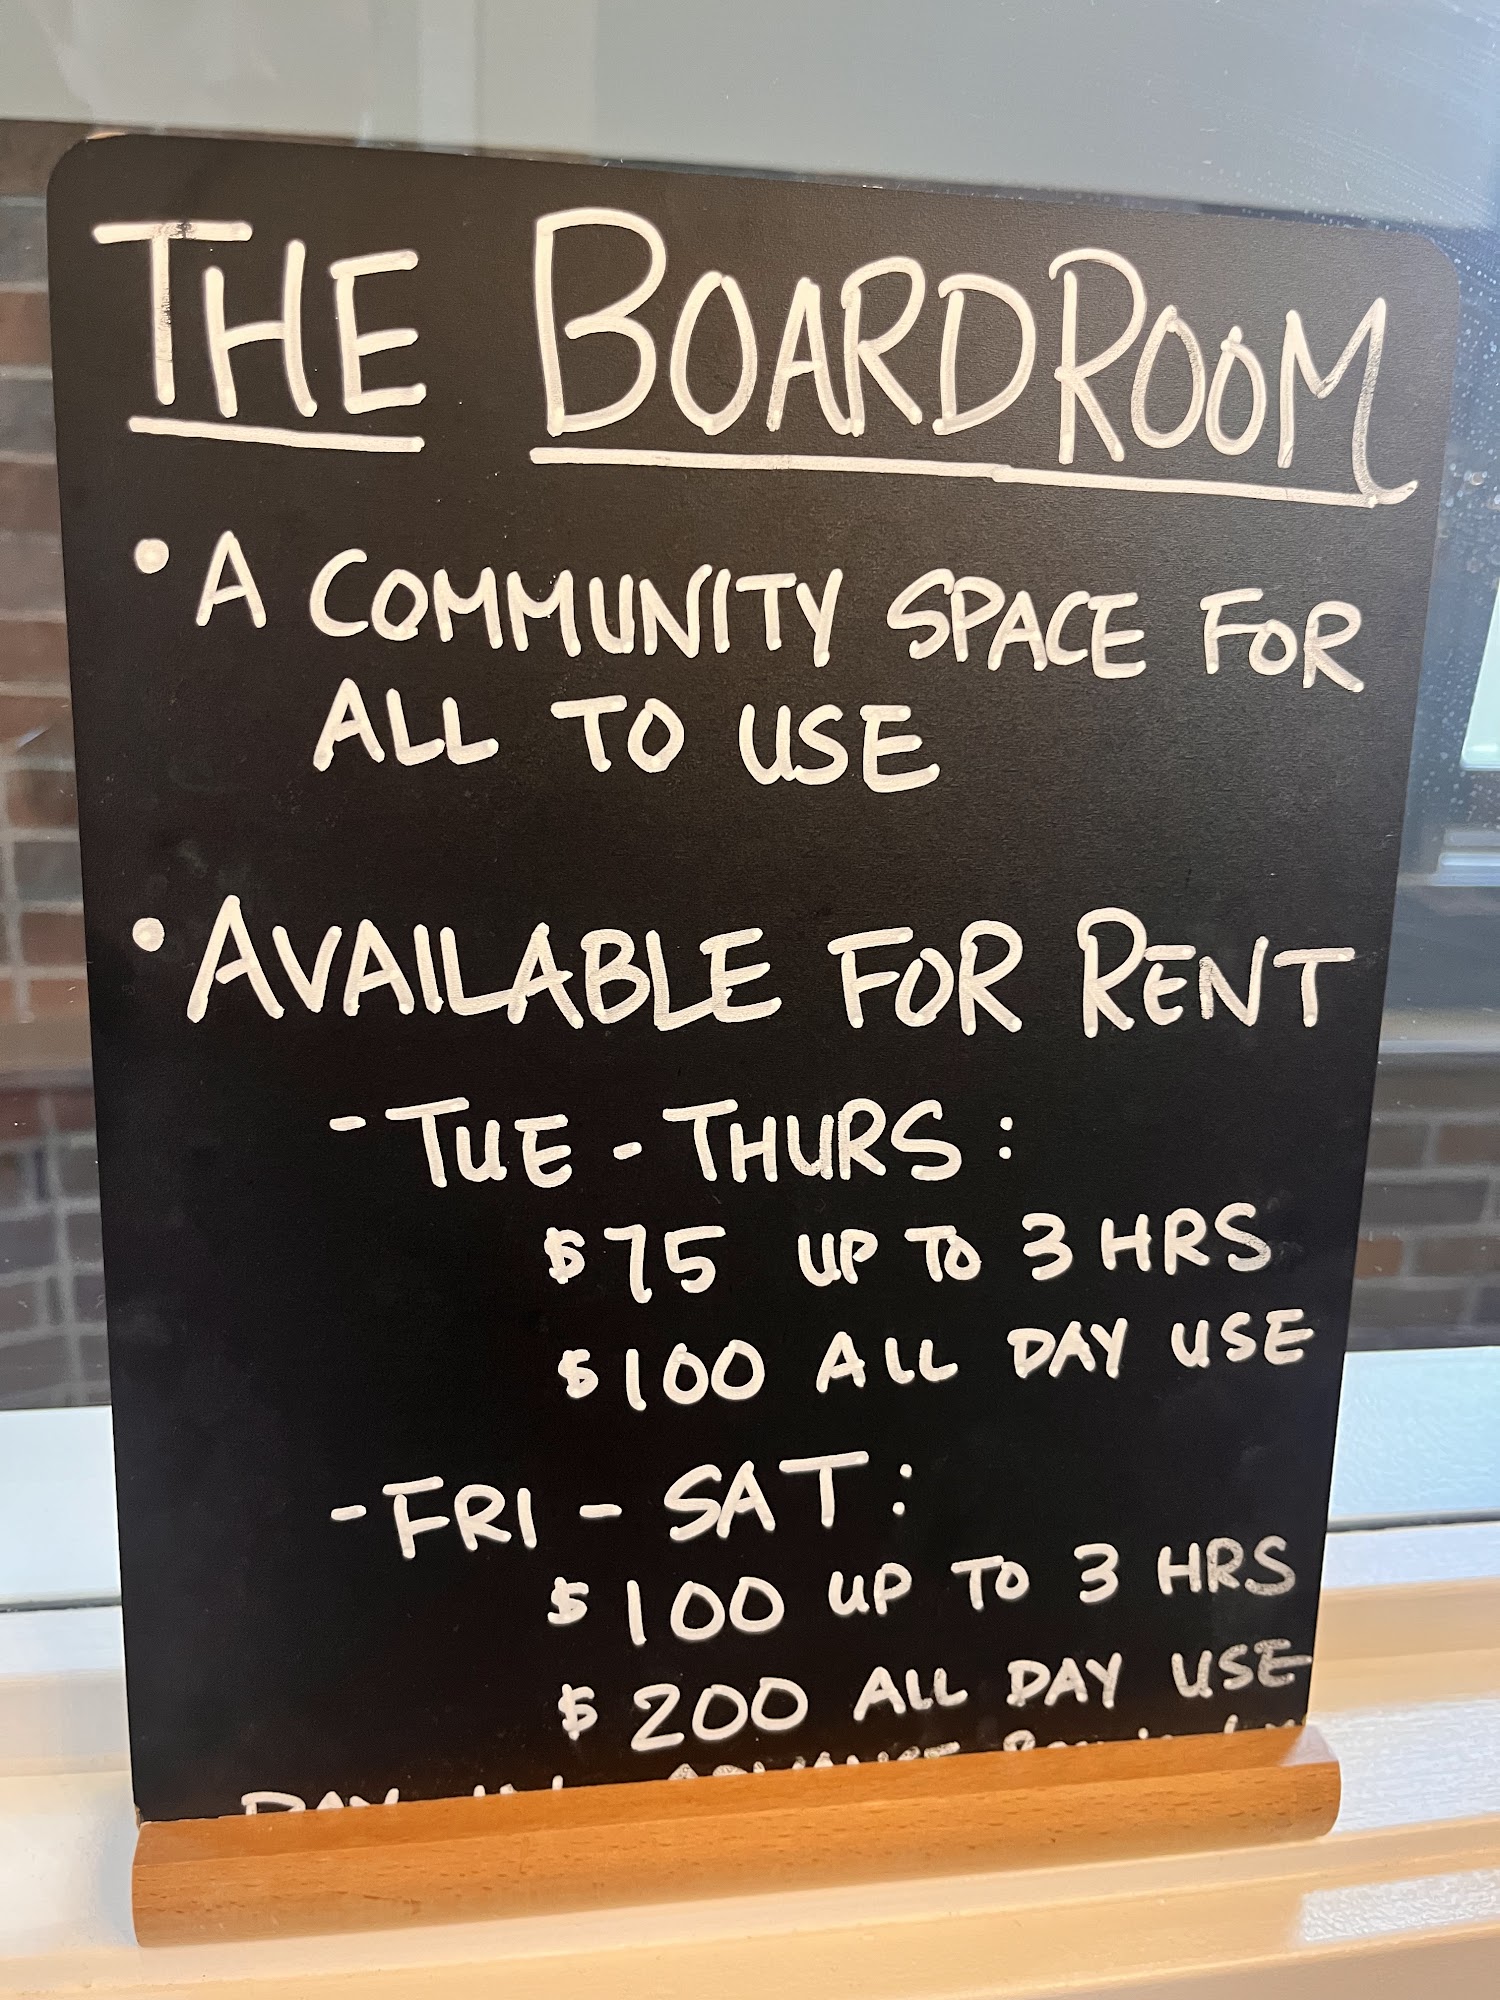 THE BOARDROOM
• A COMMUNITY SPACE FOR
ALL TO USE
• AVAILABLE FOR RENT
- TUE - THURS:
$75 UP TO 3 HRS
$100 ALL DAY USE
- FRI - SAT:
$100 UP TO 3 HRS
$200 ALL DAY USE
PAY IN ADVANCE